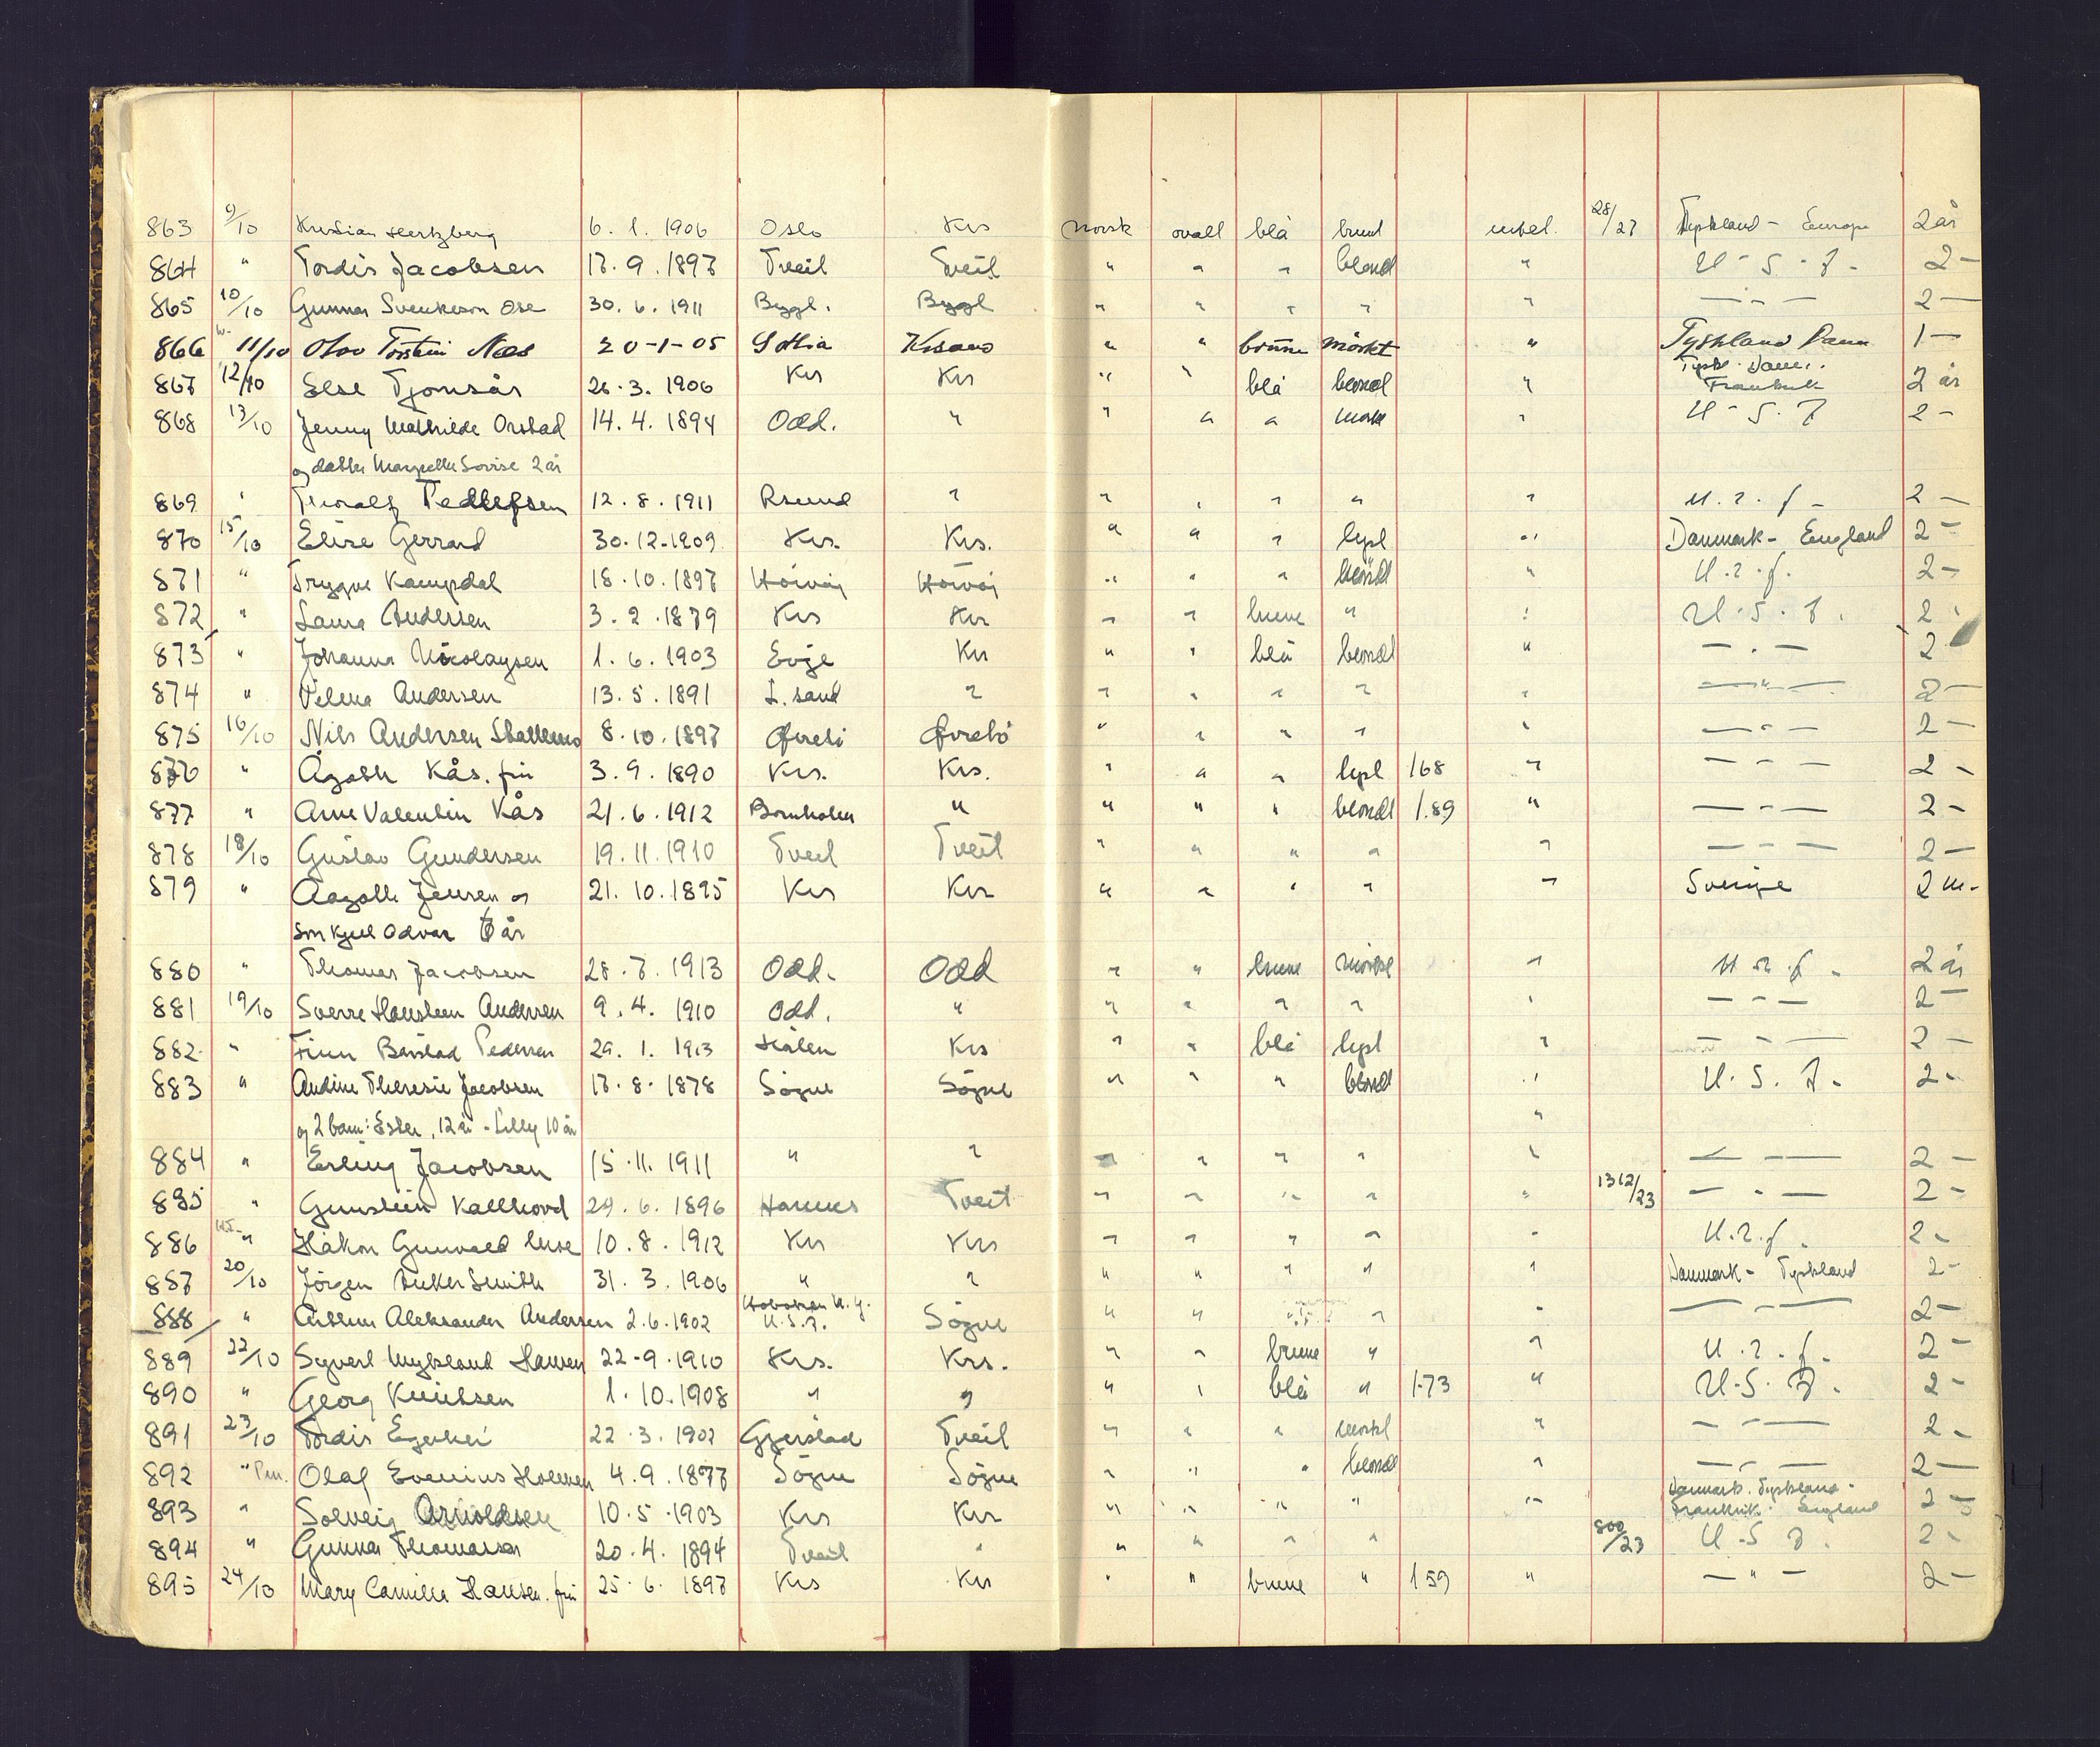 863 9/10 Kristian Hertzberg 6.1.1906 Oslo Krs norsk ovall blå brunt ubel. 28/27 Tyskland - Europa 2 år
864 " Tordis Jacobsen 17.9.1897 Tveit Tveit " " " blond " U-S-A- 2 -
865 10/10 Gunnar Svenkeson Ose 30.6.1911 Bygl. Bygl " " " " " — " — 2 —
866 11/10 Olav Torstein Næs 20-1-05 Krsand " " brune mörkt " Tyskland Danm 1 —
867 12/10 Else Tjomsås 26.3.1906 Krs Krs " " blå blond " Tyskl. Danm. Frankrik 2 år
868 13/10 Jenny Mathilde Orstad 14.4.1894 Odd. " " " " mørk " U-S-A 2 -
og datter Margrethe Lovise 2 år
869 " Thoralf Pedersen 12.8.1911 " " " " " " U.r.f. 2 —
870 15/10 Elise Gerrard 30.12.1909 Krs. Krs. " " " lyst " Danmark - England 2 -
871 " Trygve Kampdal 18.10.1897 Hövåg Hövåg " " " blond " U.r.f. 2 -
872 " Laura Andersen 3.2.1879 Krs Kr " " brune " " U.S.A. 2 "
873 " Johanna Nicolaysen 1.6.1903 Evje Kr " " blå blond " — " — 2
874 " Velena Andersen 13.5.1891 L.sand " " " " " " — " — 2 —
875 16/10 Nils Andersen 8.10.1897 Øvrebö Øvrebö " " " " " — " — 2 —
876 " Ågoth Kås. fru 3.9.1890 Krs. Krs. " " " lyst 168 " — " — 2 -
877 " Arne Valentin Kås 21.6.1912 Bornholm " " " " blondt 1.89 " — " — 2 -
878 18/10 Gustav Gundersen 19.11.1910 Tveit Tveit " " " " " — " — 2 —
879 " Aagoth Jensen og 21.10.1895 Krs Kr " " " " " Sverige 2 m-
Sön Kjell Odvar år
880 " Thomas Jacobsen 28.7.1913 Odd. Odd " " brune mörke " U.r.f. 2 år
881 19/10 Sverre Hansteen Andersen 9.4.1910 Odd. " " " " " " — " — 2 —
882 " Finn Barstad Pedersen 29.1.1913 Krs " " blå lyst " — " — 2 —
883 " Andine Theresie Jacobsen 17.8.1878 Sögne Sögne " " " blond " U.S.A. 2 -
og 2 barn: Ester, 12 år - Lilly 10 år "
884 " Erling Jacobsen 15.11.1911 " " " " " " " — " — 2 —
885 " Gunstein Kallhovd 29.6.1896 Tveit " " " " " 1312/23 — " — 2 -
886 " Håkon Gunvald 10.8.1912 Kr Krs " " " " " U.r.f. 2 -
887 20/10 Jörgen Smith 31.3.1906 " " " " " " " Danmark - Tyskland 2 -
888 " Arthur Aleksander Andersen 2.6.1902 Hoboken N.Y. U.S.A. Sögne " " " " " — " — 2 -
889 22/10 Syvert Hansen 22-9-1910 Krs. Krs. " " brune " " U.r.f. 2 -
890 " Georg Knudsen 1.10.1908 " " " " blå " 1.73 " U.S.A. 2 -
891 23/10 Tordis 22.3.1902 Gjerstad Tveit " " " mørkt " — " — 2 -
892 " Olaf Evenius Holmen 4.9.1877 Sögne Sögne " " " blond " — " — 2 —
893 " Solveig Arnoldsen 10.5.1903 Krs Kr " " " " " Danmark. Tyskland - Frankrik. England 2 -
894 " Gunnar Thomassen 20.4.1894 Tveit " " " " " 800/23 U.S.A. 2 -
895 24/10 Mary Camilla Hansen. fru 25.6.1897 Krs Kr " " brune " 159 " — " — 2 —